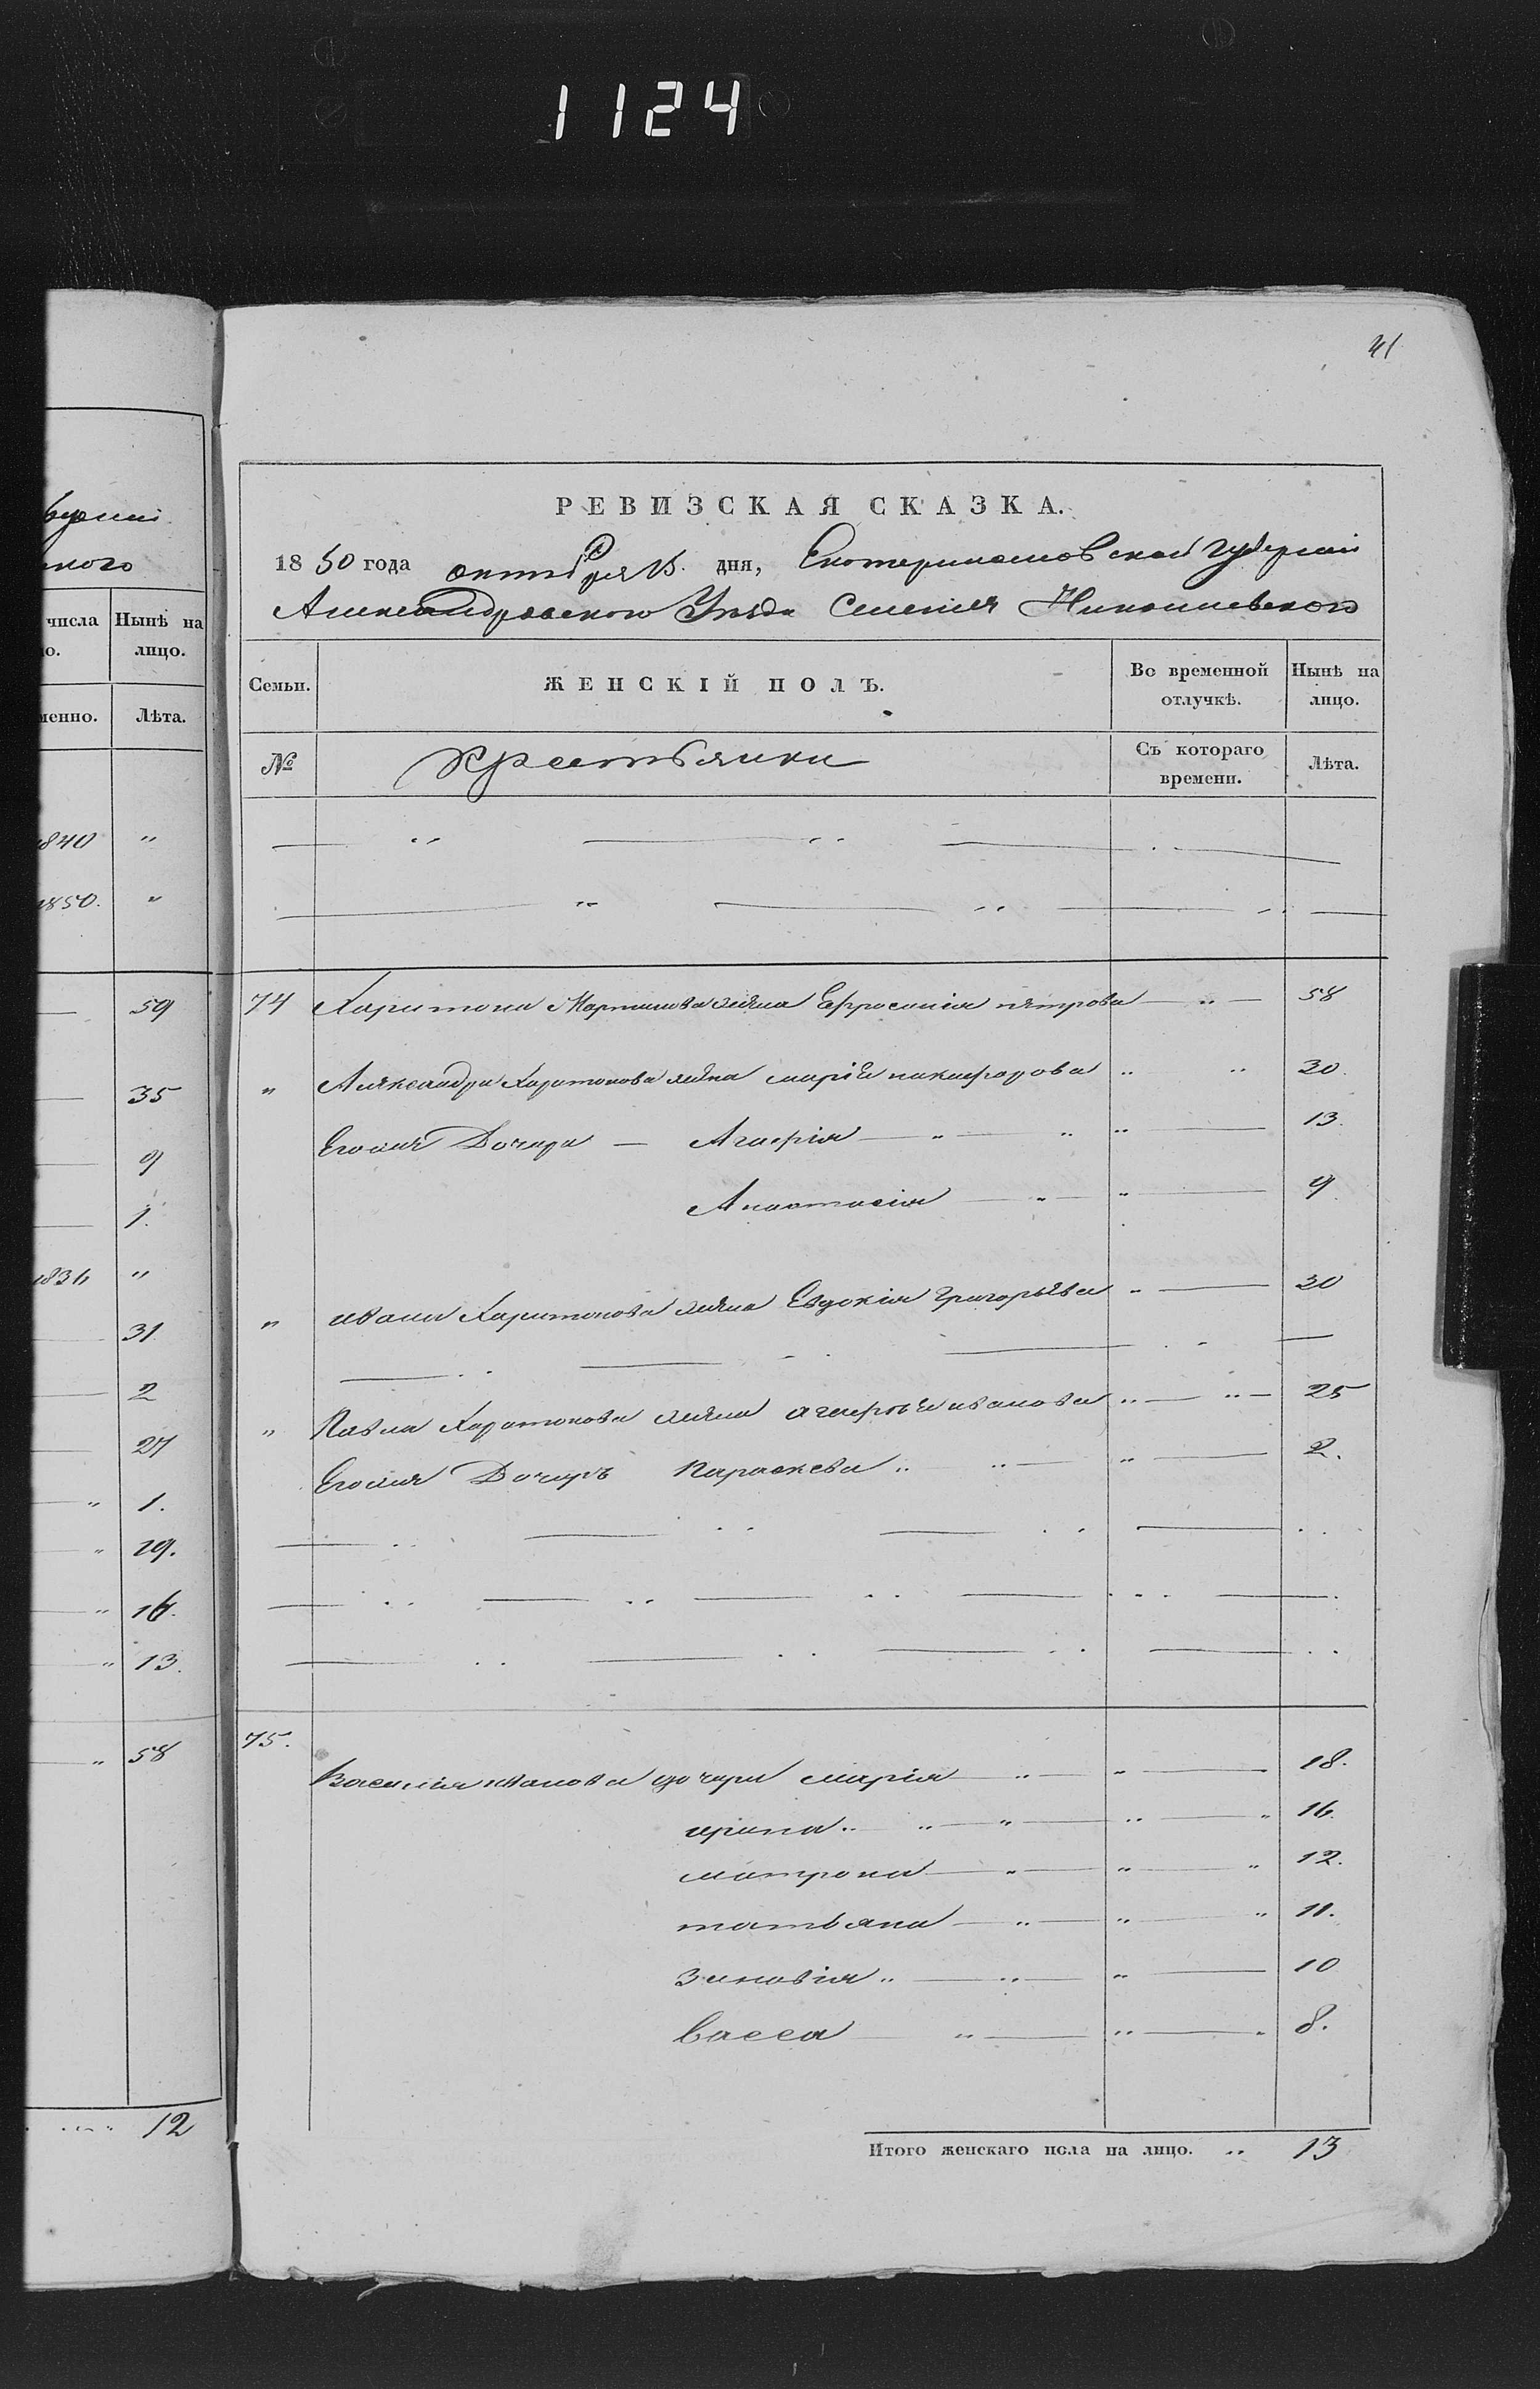 1124
41
РЕВИЗСКАЯ СКАЗКА.
1850 года октября 15. дня, Екатеринославской губернии
Александровского Уезда Селения Николаевского
числа
Нынѣ на
лицо.
Лѣта.
Семьи.
ЖЕНСКІЙ ПОЛЪ.
Во временной
отлучкѣ.
Нынѣ на
лицо.
№
Крестьянки
Съ котораго
времени.
Лѣта.
1840 "
1850. "
59
35
9
1.
"
31
2
27
" 1.
" 19.
" 16.
" 13.
" 58
12
74 Харитона Мартинова жена Ефросиния петрова " 58
" Александра Харитонова жена мария никифорова " " 30.
Егоже Дочери — Агафія " " " 13.
Анастасія " " 9
" ивана Харитонова жена Евдокія Григорьева " 30
" Павла Харитонова жена агафья иванова " " 25
Егоже Дочерь Параскева " " " 2.
75.
Василия иванова дочери марія " " 18.
ирина " " " " " 16.
матрона " " " 12.
татьяна " " " 11.
Зиновія " " " 10
васса " " " 8.
Итого женскаго пола на лицо. " 13